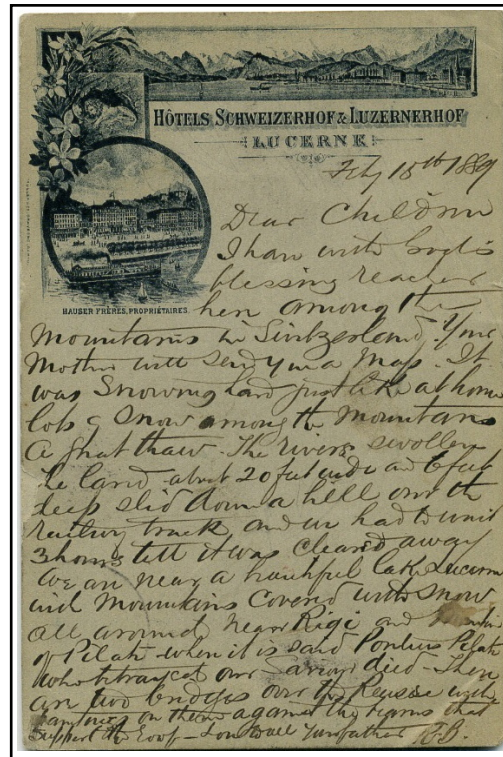 HÔTELS SCHWEIZERHOF & LUZERNERHOF
LUCERNE
HAUSER FRÈRES, PROPRIÉTAIRES
Feby 15th 1889
Dear Children
I have with God's
blessing reached
here among the
Mountains in Switzerland. Your
Mother will send you a Map. It
was Snowing hard just like at home
lots of Snow among the Mountains
A great thaw. The rivers swollen
The land about 20 feet wide and 6 feet
deep slid down a hill over the
railway track and we had to wait
3 hours till it was cleared away
We are near a beautiful lake Lucern
and Mountains Covered with Snow
all around near Rigi and
of Pilate where it is said Pontius Pilate
who betrayed our Saviour died – There
are two bridges over the Reusse with
paintings on them against the beams that
support the roof – Love to all Your father